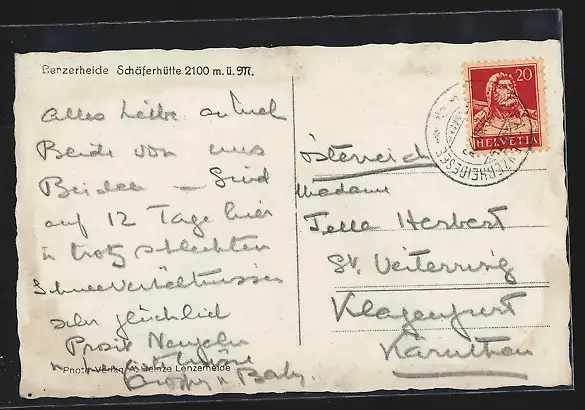 Lenzerheide Schäferhütte 2100 m. ü. M.
Alles Liebe an Euch
Beide von uns
Beiden — Sind
auf 12 Tage hier
u. trotz schlechten
Schneeverhältnissen
sehr glücklich
Prosit Neujahr
Baby.
Photo-Verlag A. Heinze Lenzerheide
20
HELVETIA
LENZERHEIDESEE
Österreich
Madame
Jella Herbert
St. Veiterring
Klagenfurt
Kärnthen